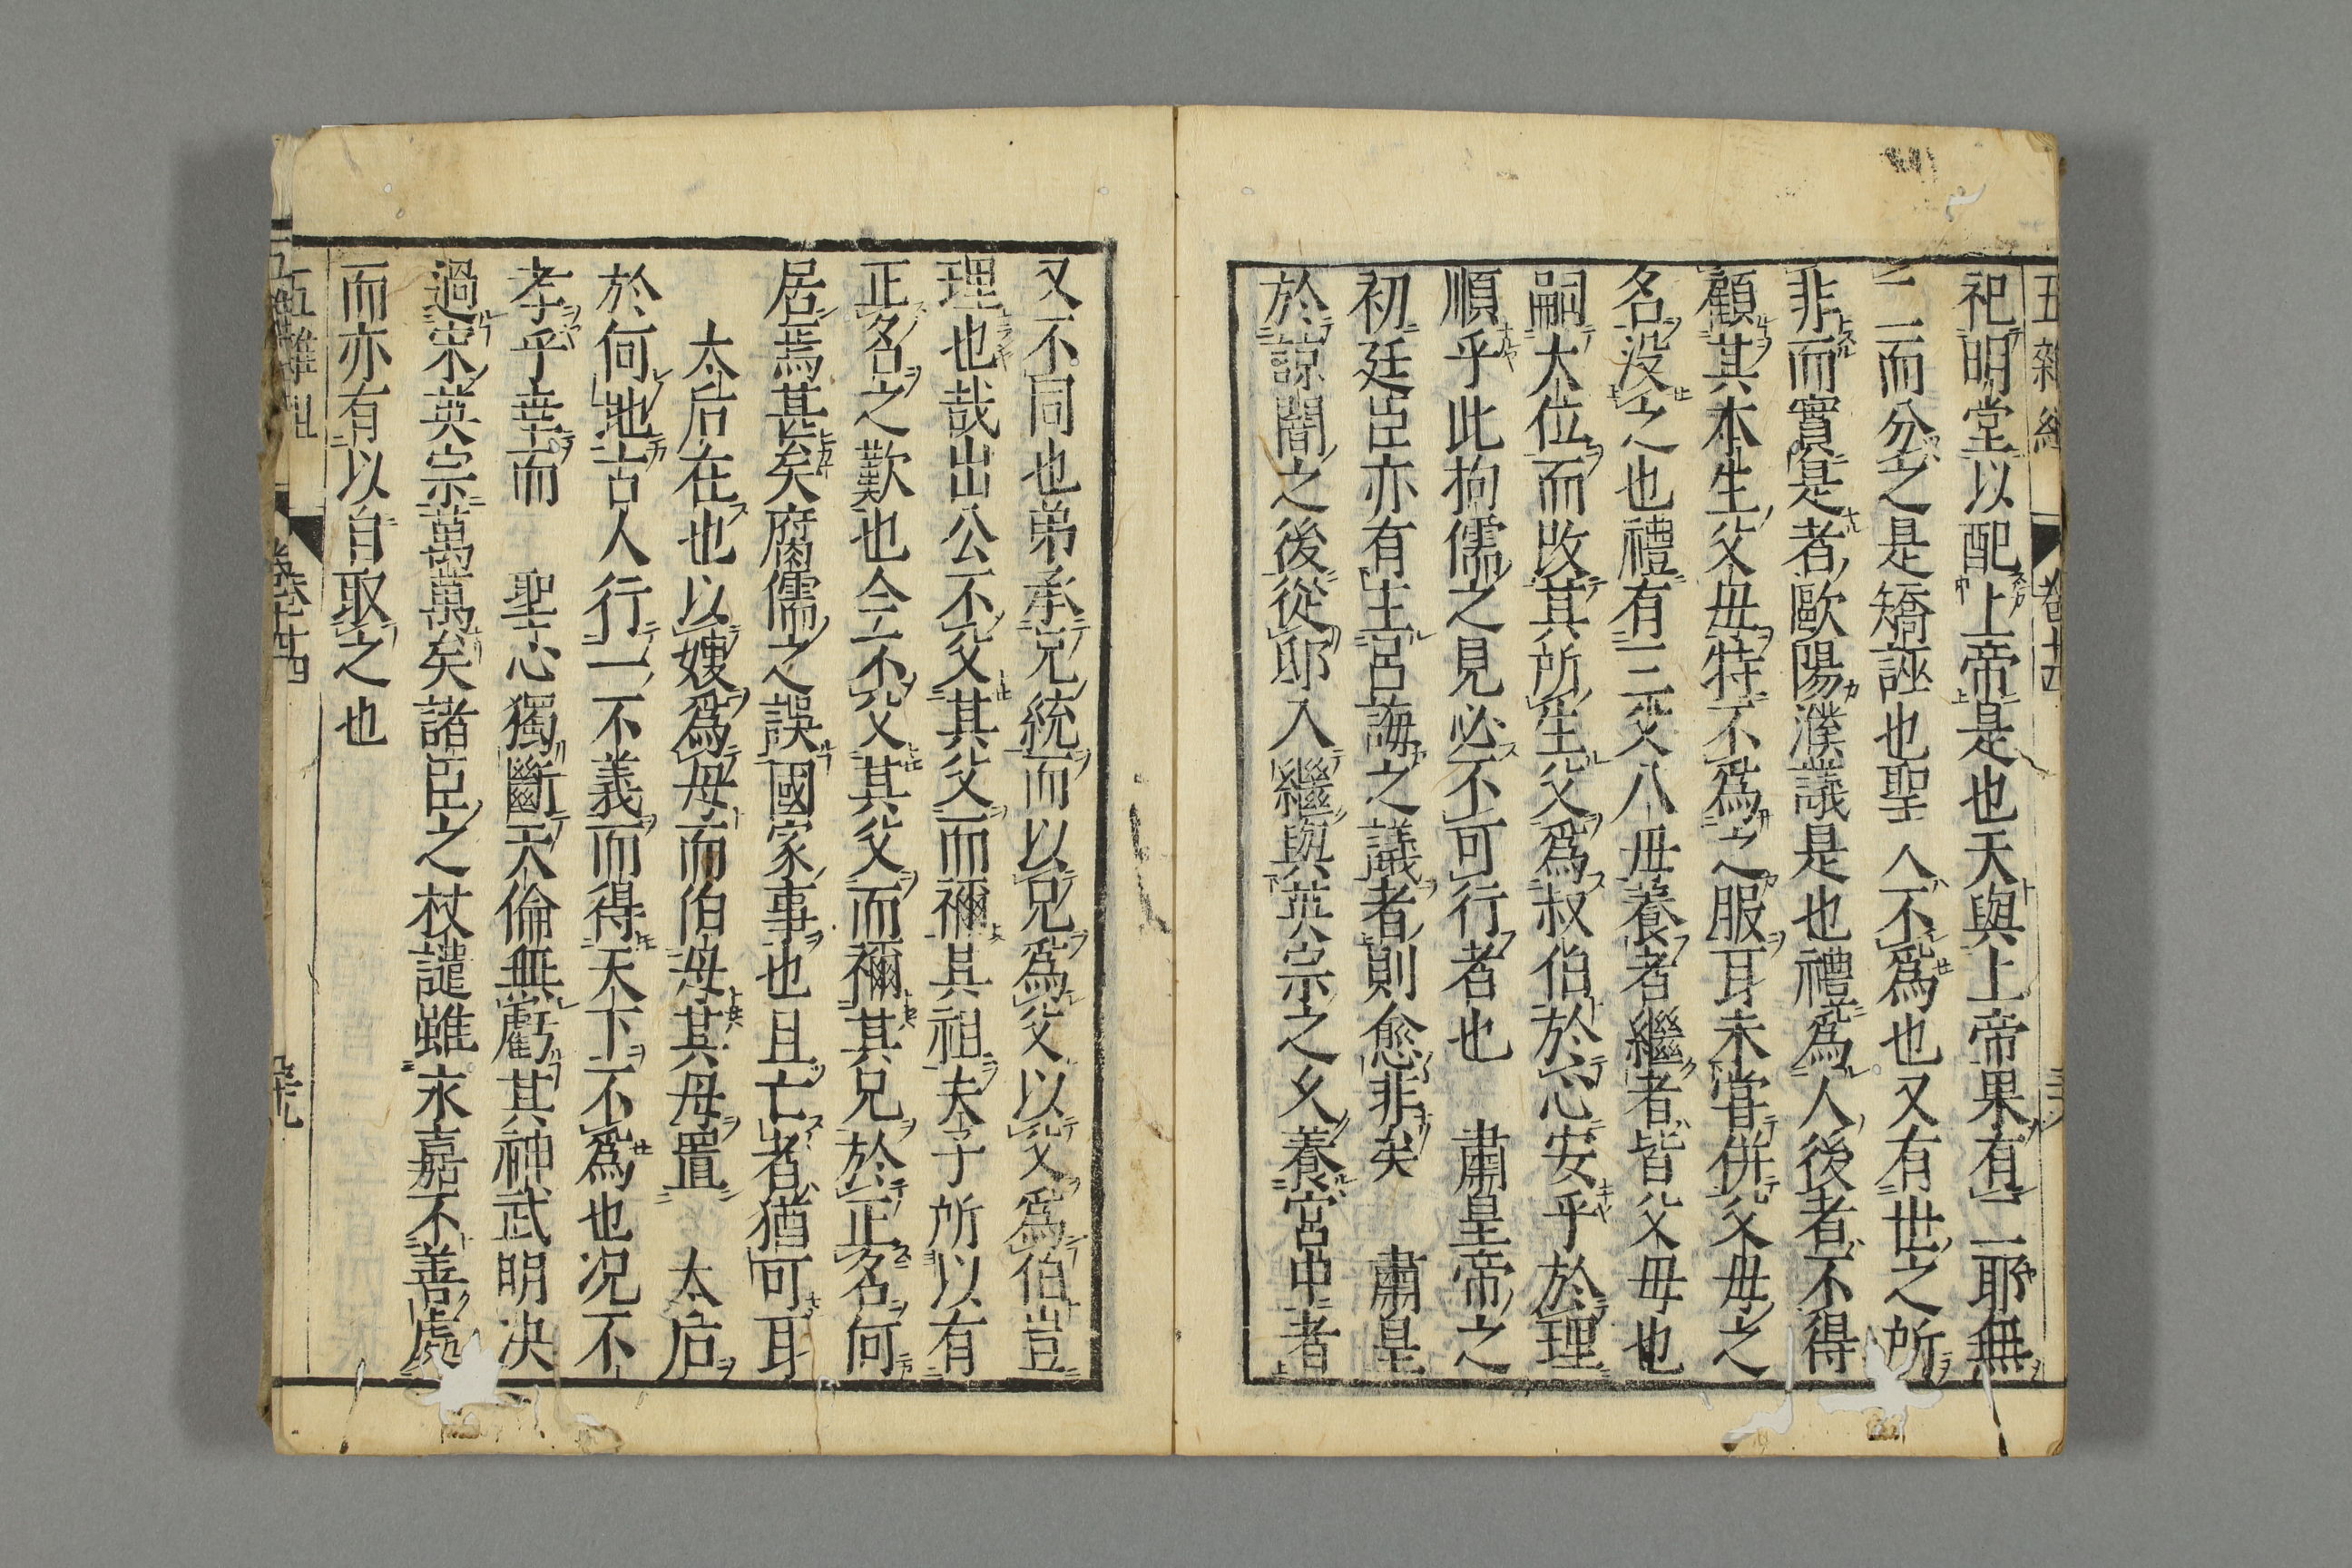 祀明堂以配上帝是也天與上帝果有二耶無
二而分之是矯誣也聖人不爲也又有世之所
非而實是者歐陽濮議是也禮爲人後者不得
顧其本生父母特不爲之服耳未嘗併父母之
名没之也禮有三父八母養者繼者皆父母也
嗣大位而改其所生父爲叔伯於心安乎於理
順乎此拘儒之見必不可行者也　肅皇帝之
初廷臣亦有主呂誨之議者則愈非矣　肅皇
於諒闇之後從邸入繼與英宗之久養宮中者
又不同也弟承兄統而以兄爲父以父爲伯豈
理也哉出公不父其父而禰其祖夫子所以有
正名之歎也今不父其父而禰其兄於正名何
居焉甚矣腐儒之誤國家事也且亡者猶可耳
太后在也以嫂爲母而伯母其母置　太后
於何地古人行一不義而得天下不爲也况不
孝乎幸而　聖心獨斷天倫無虧其神武明决
過宋英宗萬萬矣諸臣之杖譴雖永嘉不善處
而亦有以自取之也
五雜俎　卷十四